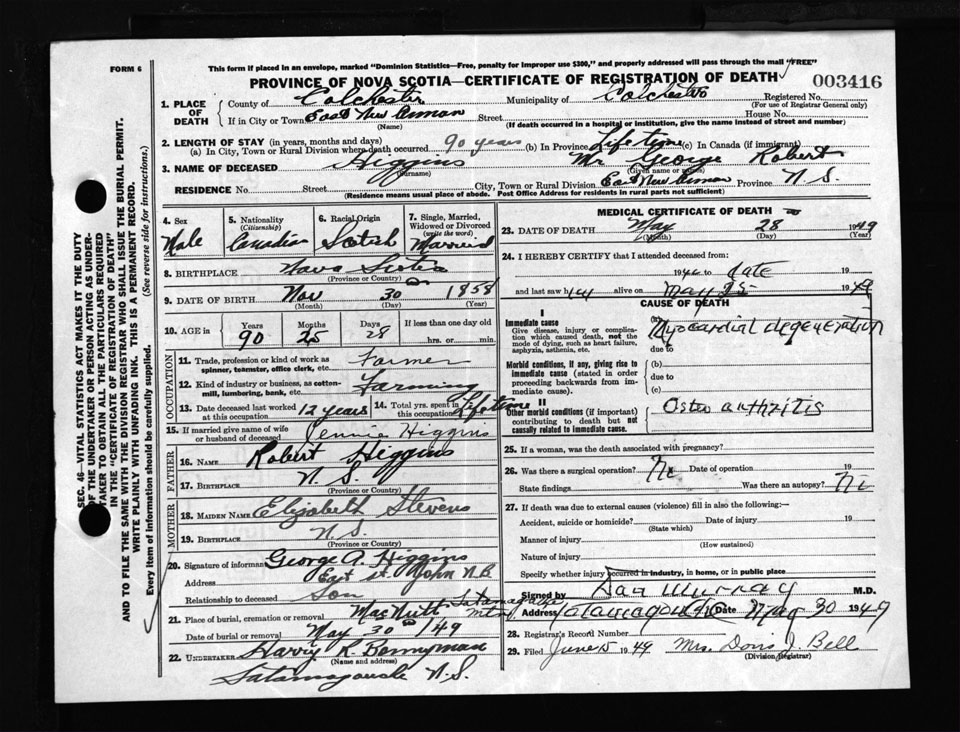 FORM 6
This form if placed in an envelope, marked "Dominion Statistics—Free, penalty for improper use $300," and properly addressed will pass through the mail "FREE"
PROVINCE OF NOVA SCOTIA—CERTIFICATE OF REGISTRATION OF DEATH
003416
1. PLACE OF DEATH County of Colchester Municipality of Colchester Registered No.
(For use of Registrar General only)
If in City or Town East New Annan Street House No.
(Name) (If death occurred in a hospital or institution, give the name instead of street and number)
2. LENGTH OF STAY (in years, months and days)
(a) In City, Town or Rural Division where death occurred 90 years (b) In Province Lifetime (c) In Canada (if immigrant)
3. NAME OF DECEASED Higgins Mr George Robert
(Surname) (Given name or names)
RESIDENCE No. Street City, Town or Rural Division East New Annan Province N.S.
(Residence means usual place of abode. Post Office Address for residents in rural parts not sufficient)
4. Sex Male
5. Nationality (Citizenship) Canadian
6. Racial Origin Scotish
7. Single, Married, Widowed or Divorced (write the word) Married
8. BIRTHPLACE Nova Scotia
(Province or Country)
9. DATE OF BIRTH Nov 30 1858
(Month) (Day) (Year)
10. AGE in Years Months Days If less than one day old
90 28 hrs. or min.
OCCUPATION
11. Trade, profession or kind of work as spinner, teamster, office clerk, etc. Farmer
12. Kind of industry or business, as cotton-mill, lumbering, bank, etc. Farming
13. Date deceased last worked at this occupation 12 years
14. Total yrs. spent in this occupation Lifetime
15. If married give name of wife or husband of deceased Jennie Higgins
FATHER
16. NAME Robert Higgins
17. BIRTHPLACE N.S.
(Province or Country)
MOTHER
18. MAIDEN NAME Elizabeth Stevens
19. BIRTHPLACE N.S.
(Province or Country)
20. Signature of informant George A. Higgins
Address East St. John N.B.
Relationship to deceased Son
21. Place of burial, cremation or removal MacNutt
Date of burial or removal May 30 /49
22. UNDERTAKER Harry R. Bonnyman
(Name and address)
Tatamagouche N.S.
MEDICAL CERTIFICATE OF DEATH
23. DATE OF DEATH May 28 1949
(Month) (Day) (Year)
24. I HEREBY CERTIFY that I attended deceased from:
to date 19
and last saw h alive on May 1949
CAUSE OF DEATH
I
Immediate cause
Give disease, injury or complication which caused death, not the mode of dying, such as heart failure, asphyxia, asthenia, etc.
(a) Myocardial degeneration
due to
Morbid conditions, if any, giving rise to immediate cause (stated in order proceeding backwards from immediate cause).
(b)
due to
(c)
II
Other morbid conditions (if important) contributing to death but not causally related to immediate cause.
Osteo arthritis
25. If a woman, was the death associated with pregnancy?
26. Was there a surgical operation? No Date of operation 19
State findings Was there an autopsy? No
27. If death was due to external causes (violence) fill in also the following:—
Accident, suicide or homicide? Date of injury 19
(State which)
Manner of injury
(How sustained)
Nature of injury
Specify whether injury occurred in industry, in home, or in public place
Signed by Dan Murray M.D.
Address Tatamagouche Date May 30 1949
28. Registrar's Record Number
29. Filed June 15 1949 Mrs. Doris J. Bell
(Division Registrar)
SEC. 46—VITAL STATISTICS ACT MAKES IT THE DUTY OF THE UNDERTAKER OR PERSON ACTING AS UNDERTAKER TO OBTAIN ALL THE PARTICULARS REQUIRED IN THE "CERTIFICATE OF REGISTRATION OF DEATH" AND TO FILE THE SAME WITH THE DIVISION REGISTRAR WHO SHALL ISSUE THE BURIAL PERMIT.
WRITE PLAINLY WITH UNFADING INK. THIS IS A PERMANENT RECORD.
Every item of information should be carefully supplied. (See reverse side for instructions.)